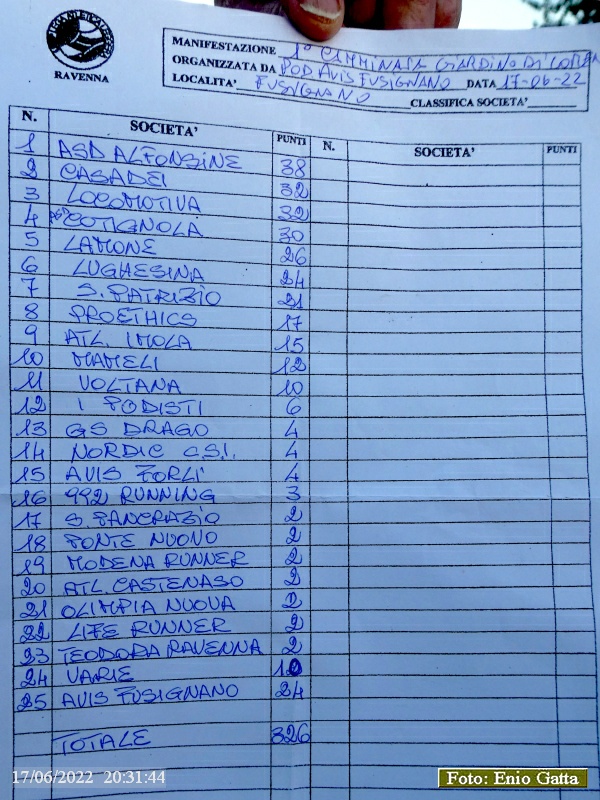 RAVENNA
MANIFESTAZIONE 1° CAMMINATA GIARDINO DI
ORGANIZZATA DA POD AVIS FUSIGNANO DATA 17-06-22
LOCALITA' FUSIGNANO CLASSIFICA SOCIETA'
N. SOCIETA' PUNTI N. SOCIETA' PUNTI
1 ASD ALFONSINE 38
2 CASADEI 32
3 LOCOMOTIVA 32
4 ASD COTIGNOLA 30
5 LAMONE 26
6 LUGHESINA 24
7 S. PATRIZIO 21
8 PROETHICS 17
9 ATL. IMOLA 15
10 MAMELI 12
11 VOLTANA 10
12 I PODISTI 6
13 GS DRAGO 4
14 NORDIC C.S.I. 4
15 AVIS FORLI' 4
16 992 RUNNING 3
17 S. PANCRAZIO 2
18 PONTE NUOVO 2
19 MODENA RUNNER 2
20 ATL. CASTENASO 2
21 OLIMPIA NUOVA 2
22 LIFE RUNNER 2
23 TEODORA RAVENNA 2
24 VARIE 10
25 AVIS FUSIGNANO 24
TOTALE 326
17/06/2022 20:31:44
Foto: Enio Gatta